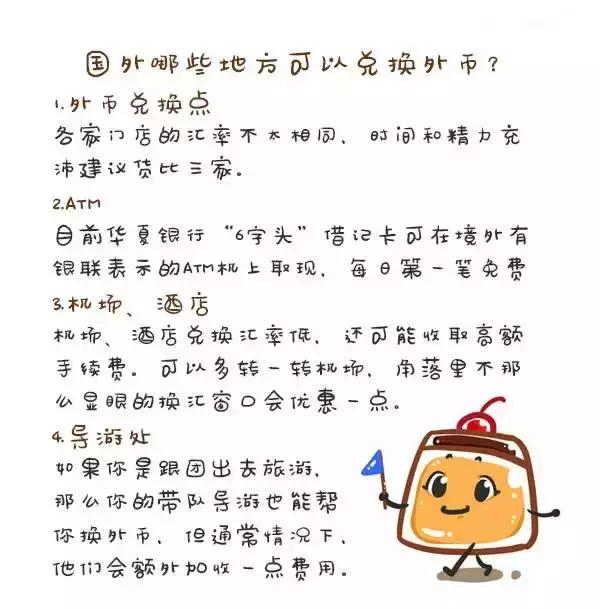 国外哪些地方可以兑换外币？
1.外币兑换点
各家门店的汇率不太相同，时间和精力充
沛建议货比三家。
2.ATM
目前华夏银行“6字头”借记卡可在境外有
银联表示的ATM机上取现，每日第一笔免费
3.机场、酒店
机场、酒店兑换汇率低，还可能收取高额
手续费。可以多转一转机场，角落里不那
么显眼的换汇窗口会优惠一点。
4.导游处
如果你是跟团出去旅游，
那么你的带队导游也能帮
你换外币，但通常情况下，
他们会额外加收一点费用。